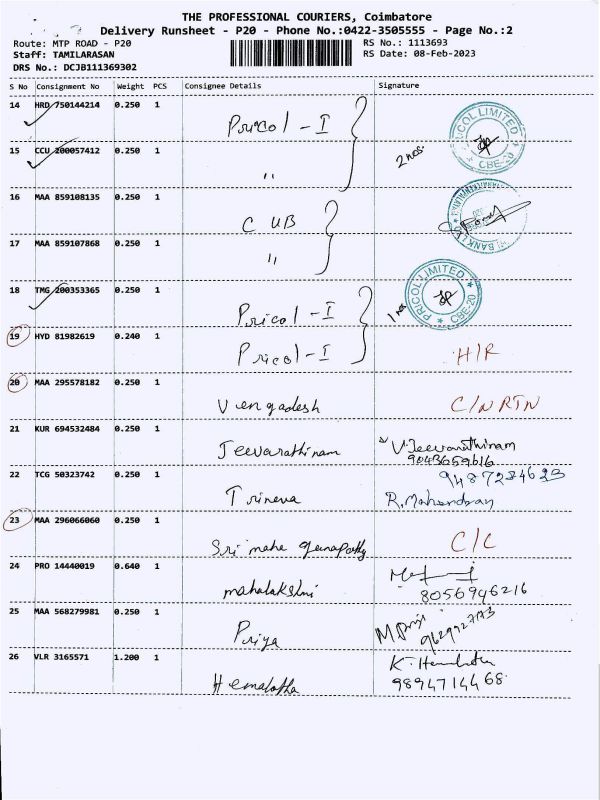 THE PROFESSIONAL COURIERS, Coimbatore
Delivery Runsheet - P20 - Phone No.:0422-3505555 - Page No.:2
Route: MTP ROAD - P20
RS No.: 1113693
Staff: TAMILARASAN
RS Date: 08-Feb-2023
DRS No.: DCJB111369302
S No Consignment No Weight PCS Consignee Details Signature
14 HRD 750144214 0.250 1
Pricol - I
PRICOL LIMITED CBE-20
15 CCU 200057412 0.250 1
" 2 nos.
16 MAA 859108135 0.250 1
CUB
17 MAA 859107868 0.250 1
"
18 TMG 200353365 0.250 1
Pricol - I 1 no
PRICOL LIMITED CBE-20
19 HYD 81982619 0.240 1
Pricol - I H/R
20 MAA 295578182 0.250 1
Vengadesh C/N RTN
21 KUR 694532484 0.250 1
Jeevarathinam V.Jeevarathinam
9043659616
22 TCG 50323742 0.250 1
Trineva R.Mahendran
23 MAA 296066060 0.250 1
Sri maha C/C
24 PRO 14440019 0.640 1
mahalakshmi 8056946216
25 MAA 568279981 0.250 1
Priya M Priya
26 VLR 3165571 1.200 1
Hemalatha K. Hemalatha
9894714468